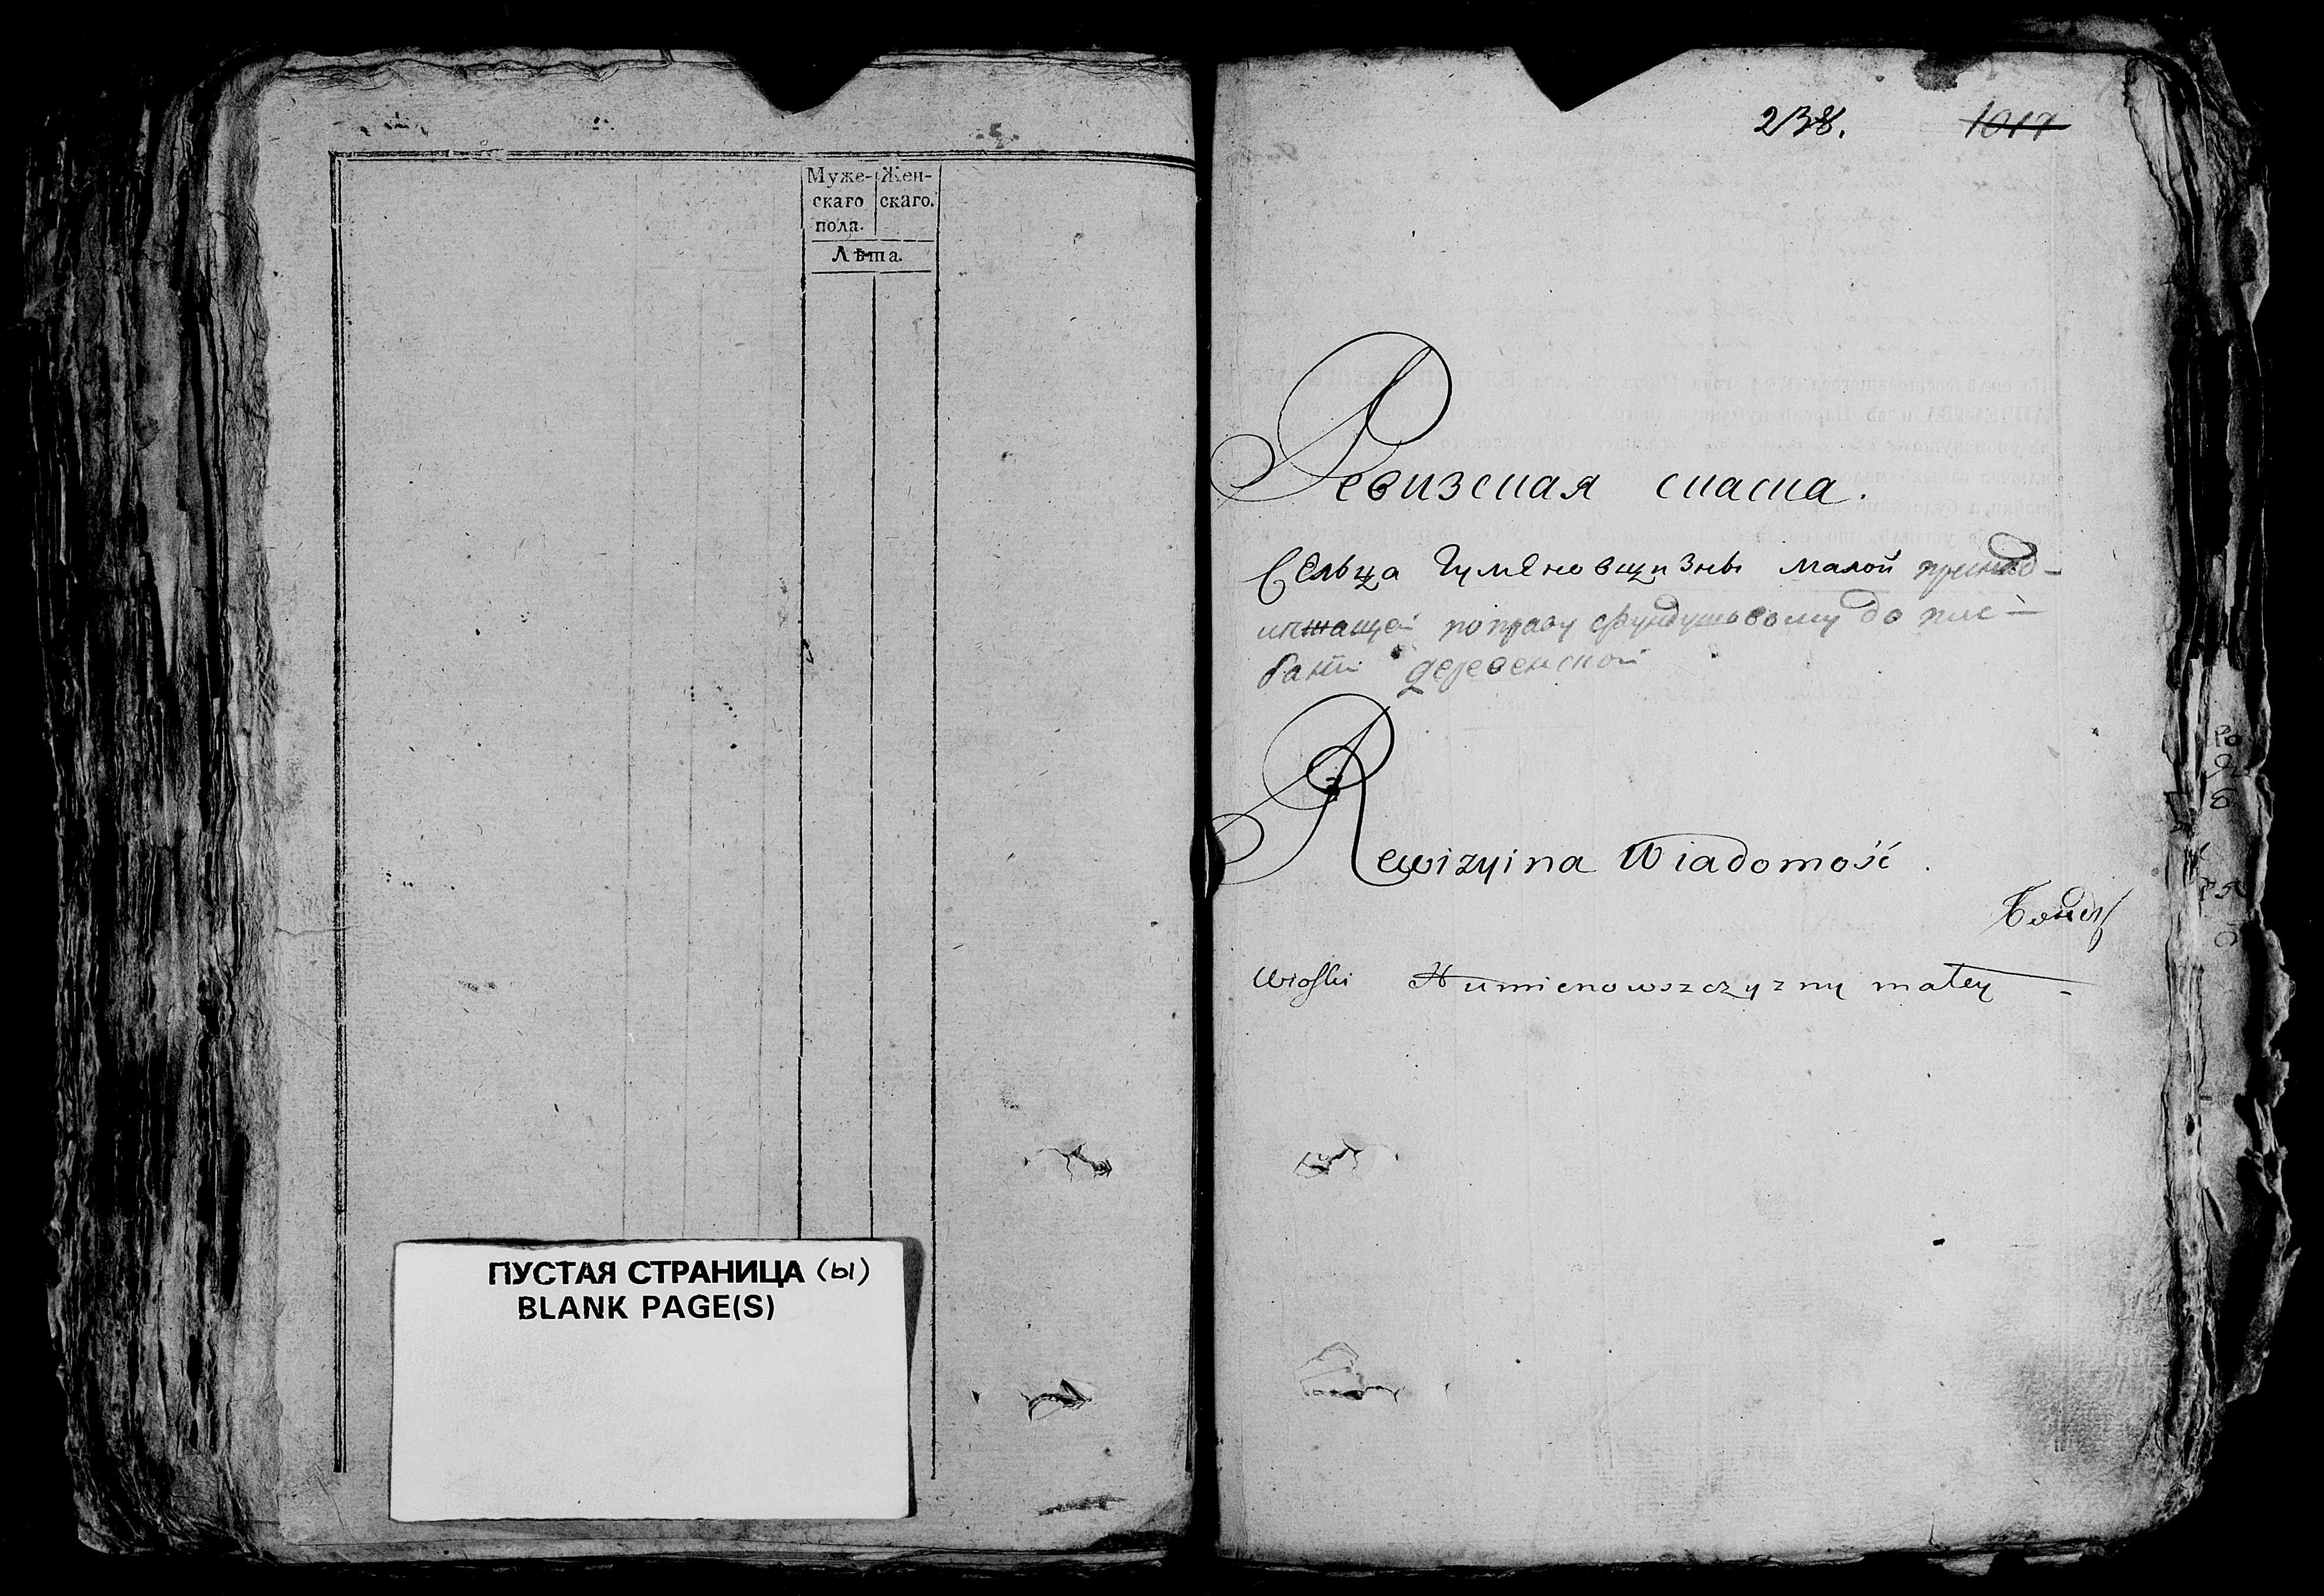 Муже- Жен-
скаго скаго.
пола.
Лѣта.
ПУСТАЯ СТРАНИЦА (ы)
BLANK PAGE(S)
238. 1017
Ревизская сказка.
Сельца Гуменовщизны малой принад-
лежащей по праву фундушовому до пле-
банїи деревенской
Rewizyina Wiadomość.
Wioski Humienowszczyzny małey